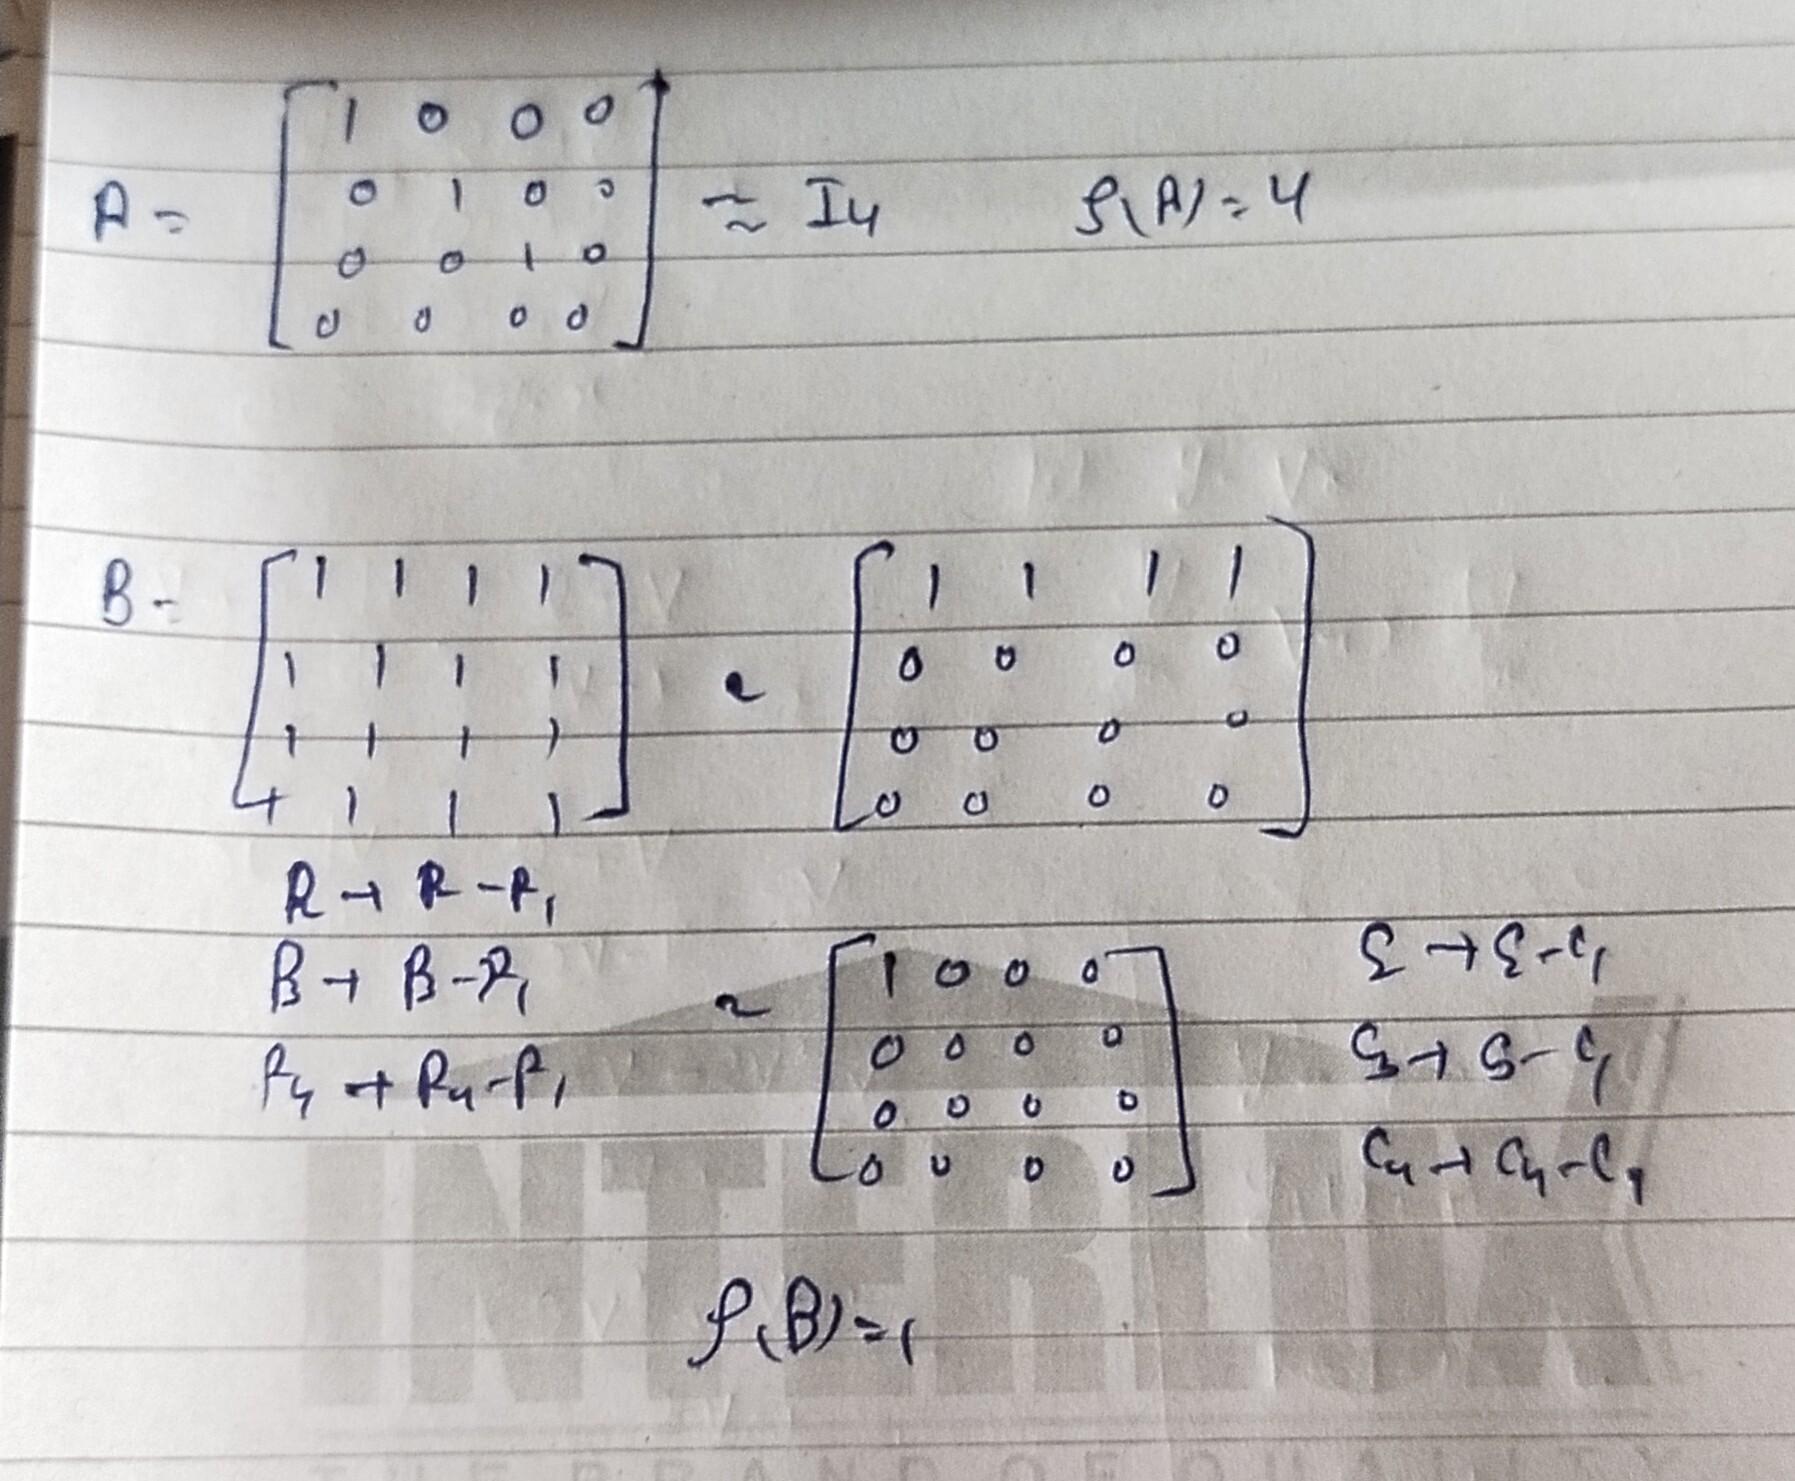 A = [ 1 0 0 0
0 1 0 0
0 0 1 0
0 0 0 0 ] ≈ I4 ρ(A) = 4
B = [ 1 1 1 1
1 1 1 1
1 1 1 1
1 1 1 1 ] ~ [ 1 1 1 1
0 0 0 0
0 0 0 0
0 0 0 0 ]
R → R - R1
R3 → R3 - R1
R4 → R4 - R1
~ [ 1 0 0 0
0 0 0 0
0 0 0 0
0 0 0 0 ]
C2 → C2 - C1
C3 → C3 - C1
C4 → C4 - C1
ρ(B) = 1
INTERLUX
THE BRAND OF QUALITY